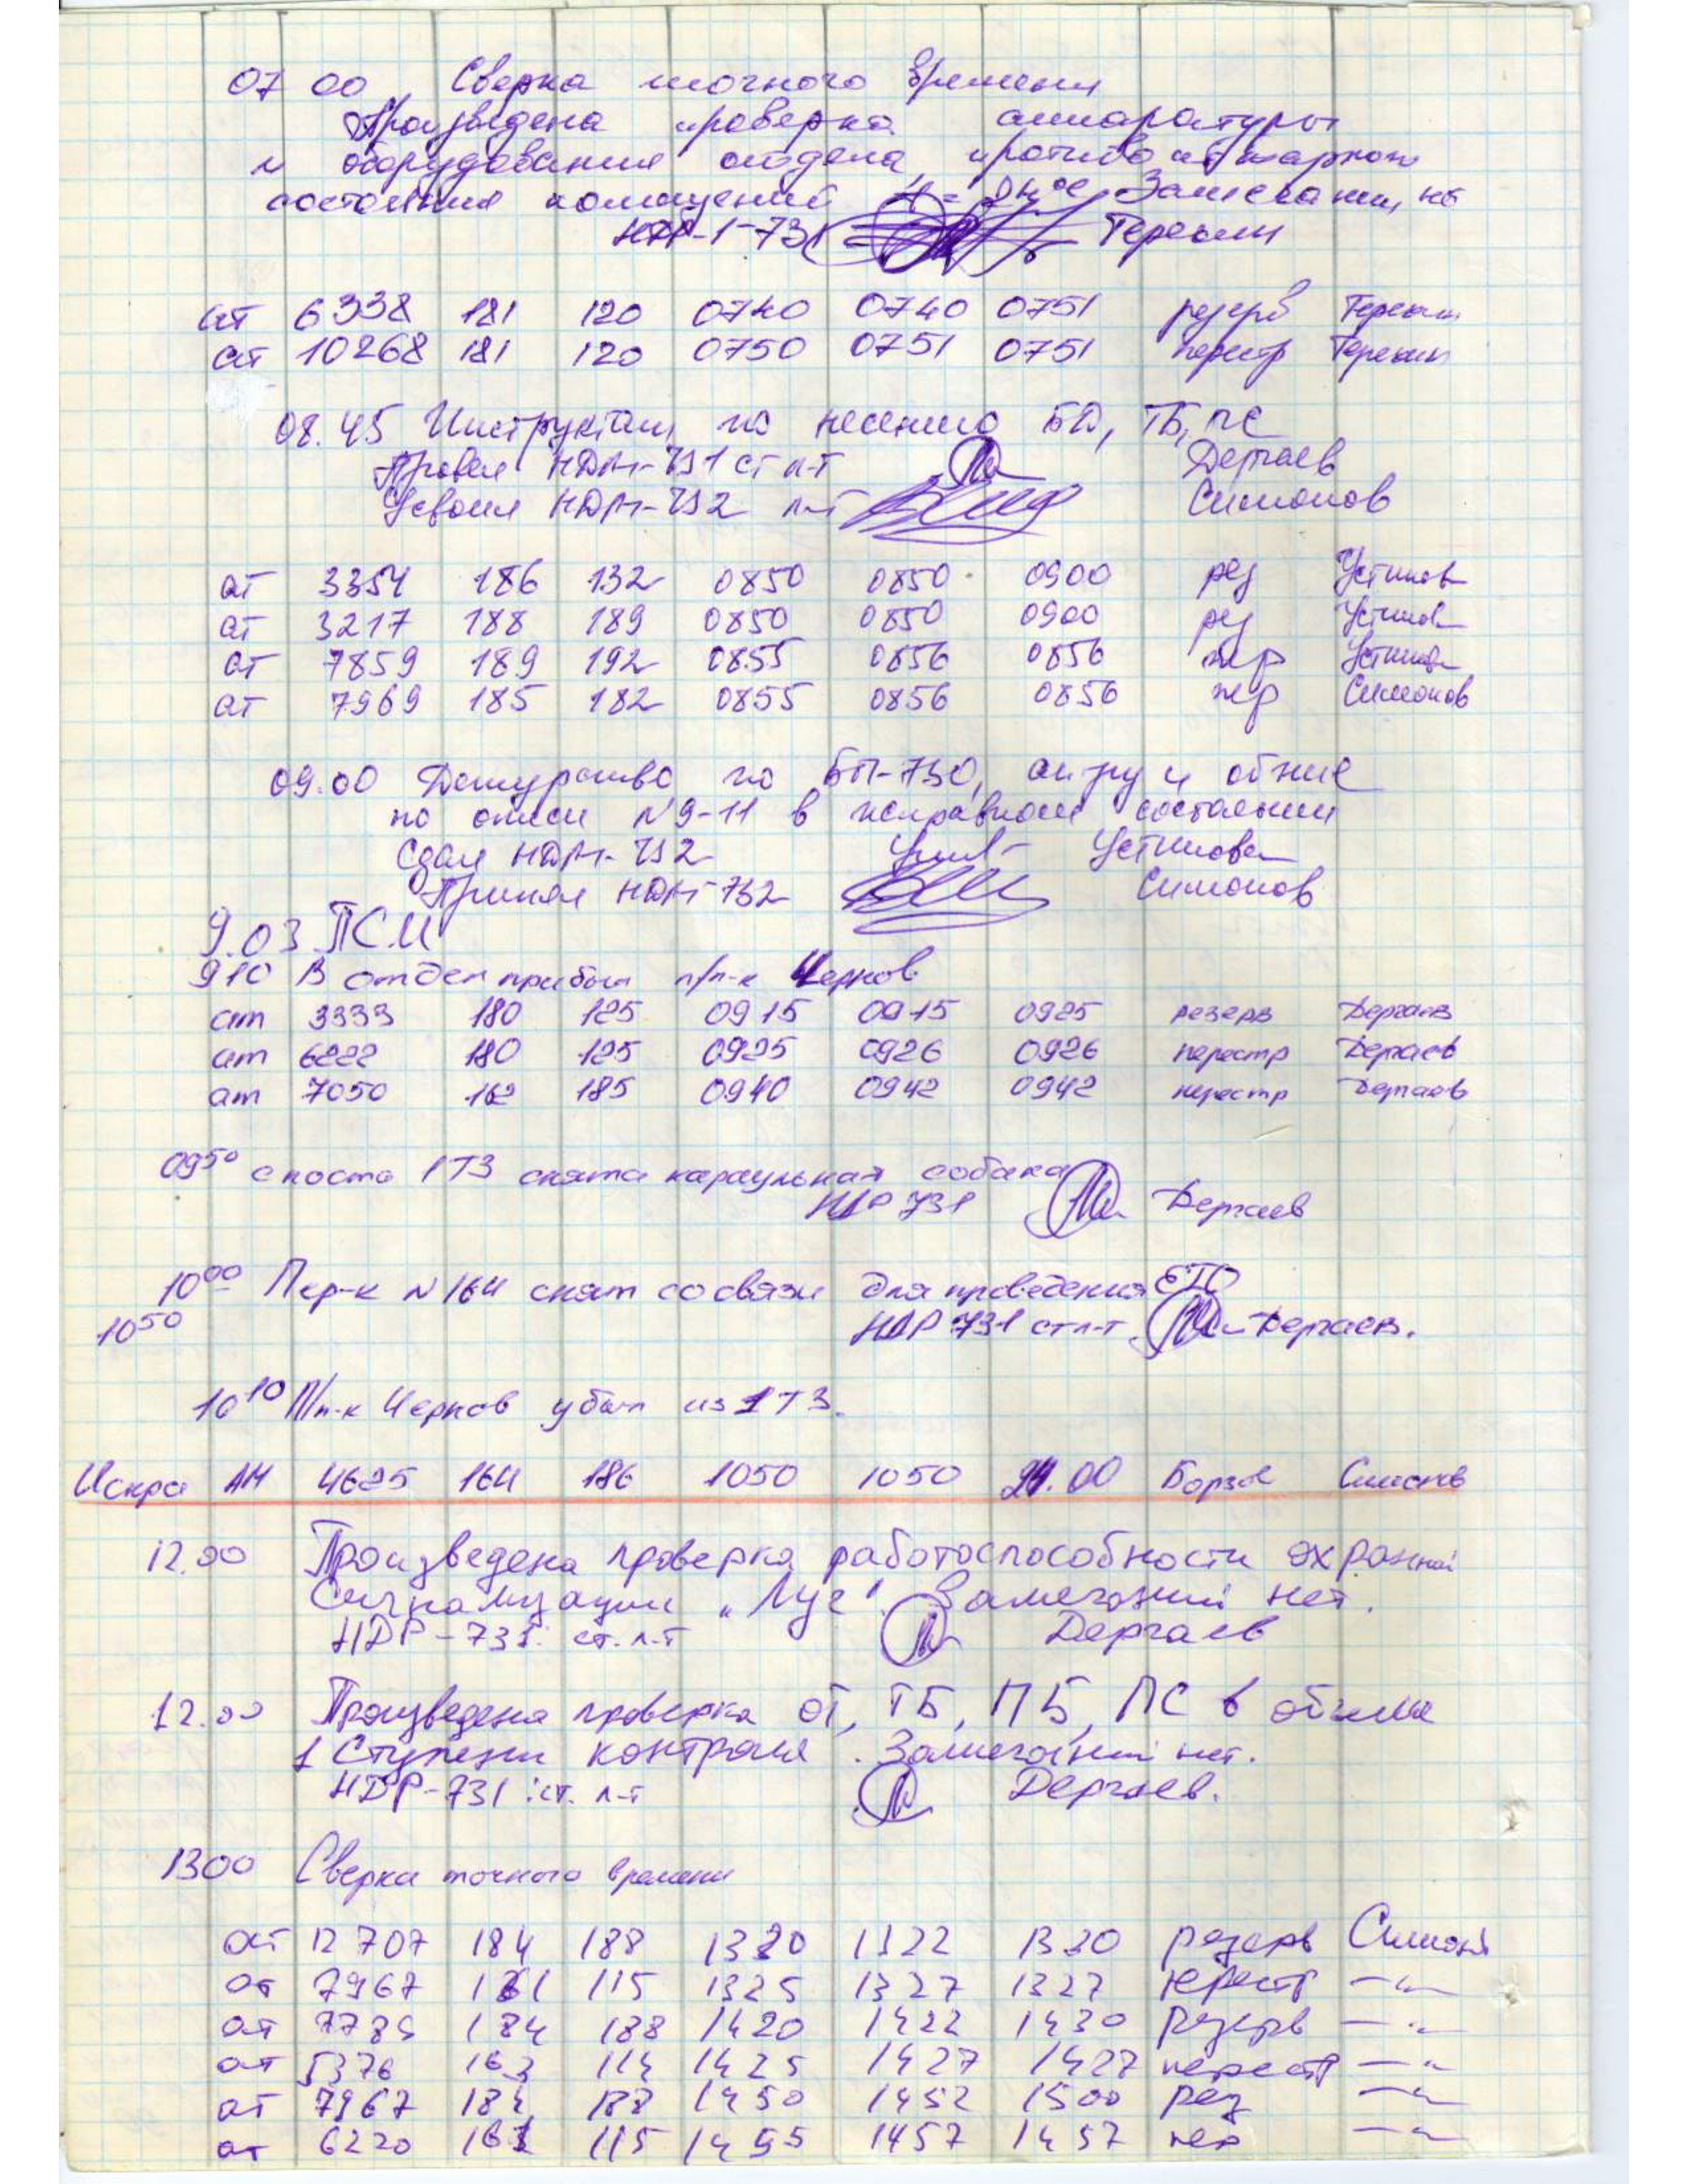 07 00 Сверка точного времени
Произведена проверка аппаратуры
и оборудования отдела, противопожарного
состояния помещений Замечаний нет
НДР-1-731 Терехин
ат 6338 181 120 0740 0740 0751 резерв Терехин
ат 10268 181 120 0750 0751 0751 перестр Терехин
08.45 Инструктаж по несению БД, ТБ, ПС
Провел НДР-731 ст л-т Дергаев
Усвоил НДР-732 л-т Симонов
ат 3354 186 132 0850 0850 0900 рез Устинов
ат 3217 188 189 0850 0850 0900 рез Устинов
ат 7859 189 192 0855 0856 0856 пер Устинов
ат 7969 185 182 0855 0856 0856 пер Симонов
09.00 Дежурство по БП-730, ап-ру и
по описи №9-11 в исправном состоянии
Сдал НДР-732 Устинов
Принял НДР-732 Симонов
9.03 ПСИ
910 В отдел прибыл п/п-к Чернов
ат 3333 180 125 0915 0915 0925 резерв Дергаев
ат 6222 180 125 0925 0926 0926 перестр Дергаев
ат 7050 162 185 0940 0942 0942 перестр Дергаев
0950 с поста 1ТЗ снята караульная собака
НДР 731 Дергаев
1000 Пер-к №164 снят со связи для проведения ЕТО
1050 НДР 731 ст л-т Дергаев.
1010 П/п-к Чернов убыл из 1ТЗ.
Искра АМ 4625 164 186 1050 1050 24.00 Борзов Симонов
12.00 Произведена проверка работоспособности охранной
Сигнализации „Луч". Замечаний нет.
НДР-731 ст. л-т Дергаев
12.00 Произведена проверка ОТ, ТБ, ПБ, ПС в объеме
1 Ступени контроля. Замечаний нет.
НДР-731 ст. л-т Дергаев.
1300 Сверка точного времени
ат 12707 184 188 1320 1322 1330 резерв Симонов
ат 7967 161 115 1325 1327 1327 перестр —"—
ат 7785 184 188 1420 1422 1430 резерв —"—
ат 5376 163 114 1425 1427 1427 перестр —"—
ат 7967 184 188 1450 1452 1500 рез —"—
ат 6220 161 115 1455 1457 1457 пер —"—